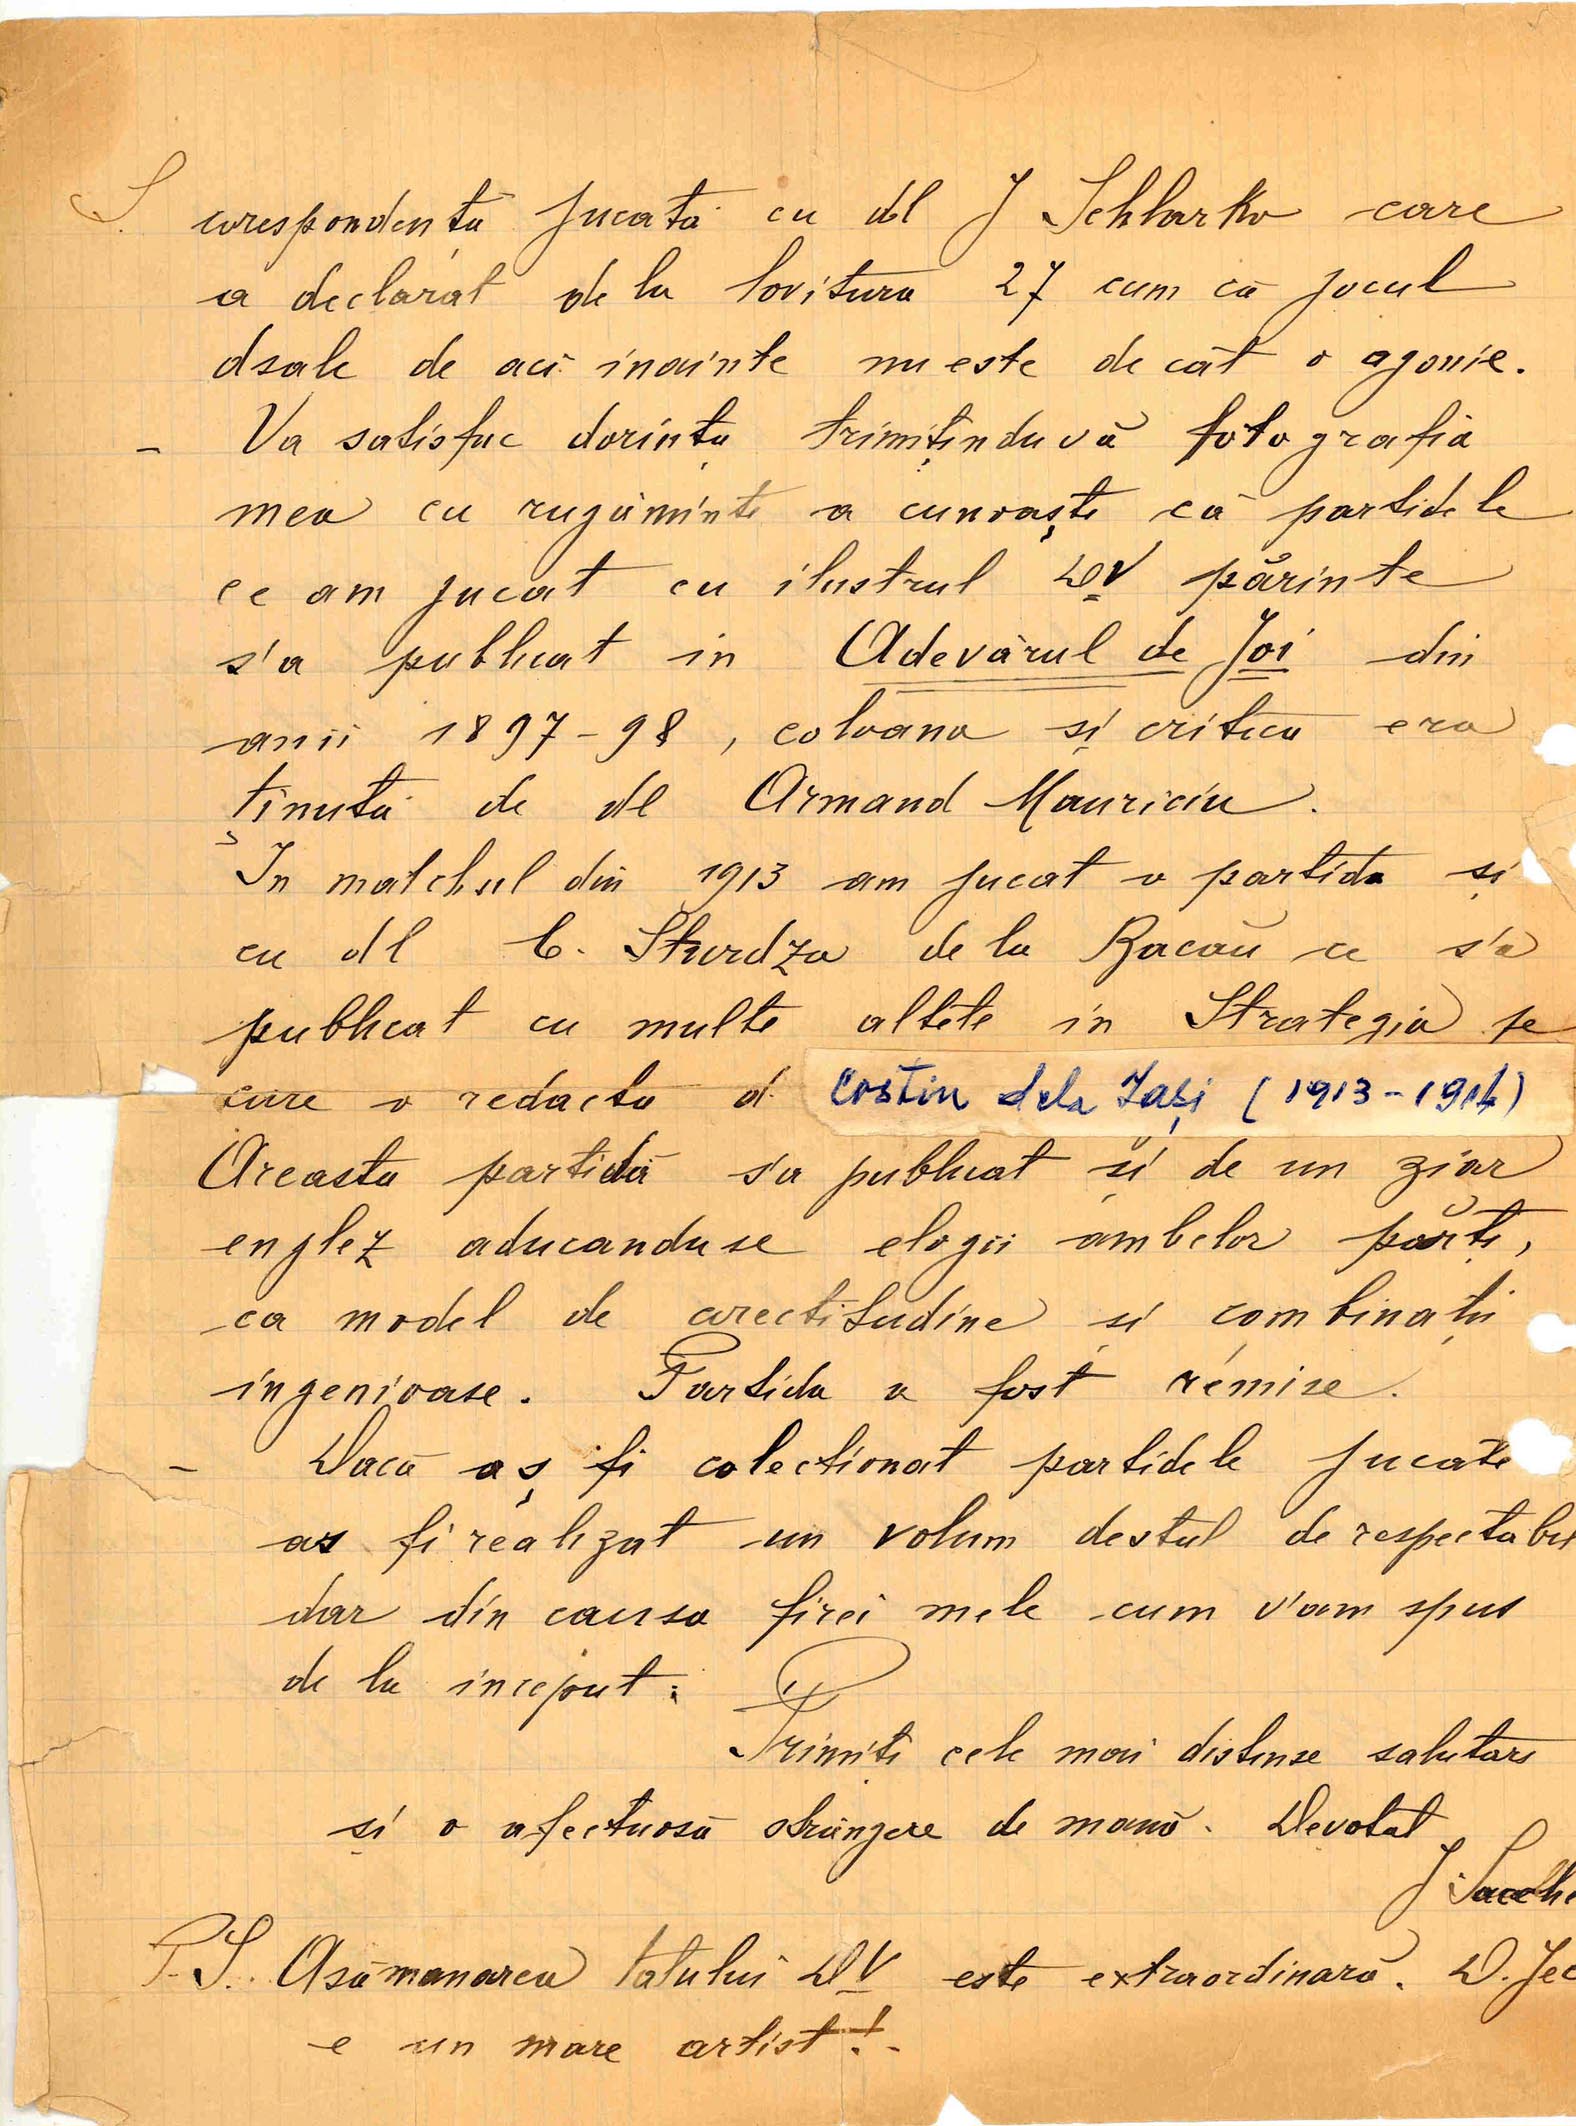 S. corespondență jucată cu dl J Schharko care
a declarat de la lovitura 27 cum că jocul
dsale de aci inainte nu este de cât o agonie.
- Va satisfac dorința trimiținduvă fotografia
mea cu rugăminte a cunoaște că partidele
ce am jucat cu ilustrul DV părinte
s'a publicat in Adevărul de Joi din
anii 1897-98, coloana și critica era
ținută de dl Armand Mauriciu.
In matchul din 1913 am jucat o partida și
cu dl C. Sturdza de la Bacău ce s'a
publicat cu multe altele in Strategia pe
care o redacta d. Costin dela Iași (1913-1914)
Aceasta partidă s'a publicat și de un ziar
englez aducanduse elogii ambelor părți,
ca model de corectitudine și combinații
ingenioase. Partida a fost remise.
- Dacă aș fi colectionat partidele jucate
as fi realizat un volum destul de respectabil
dar din causa firei mele cum v'am spus
de la inceput.
Primiti cele mai distinse salutari
și o afectuosă strângere de mană. Devotat
J.
P.S. Asămanarea tatului DV este extraordinară. D. Jec
e un mare artist!.